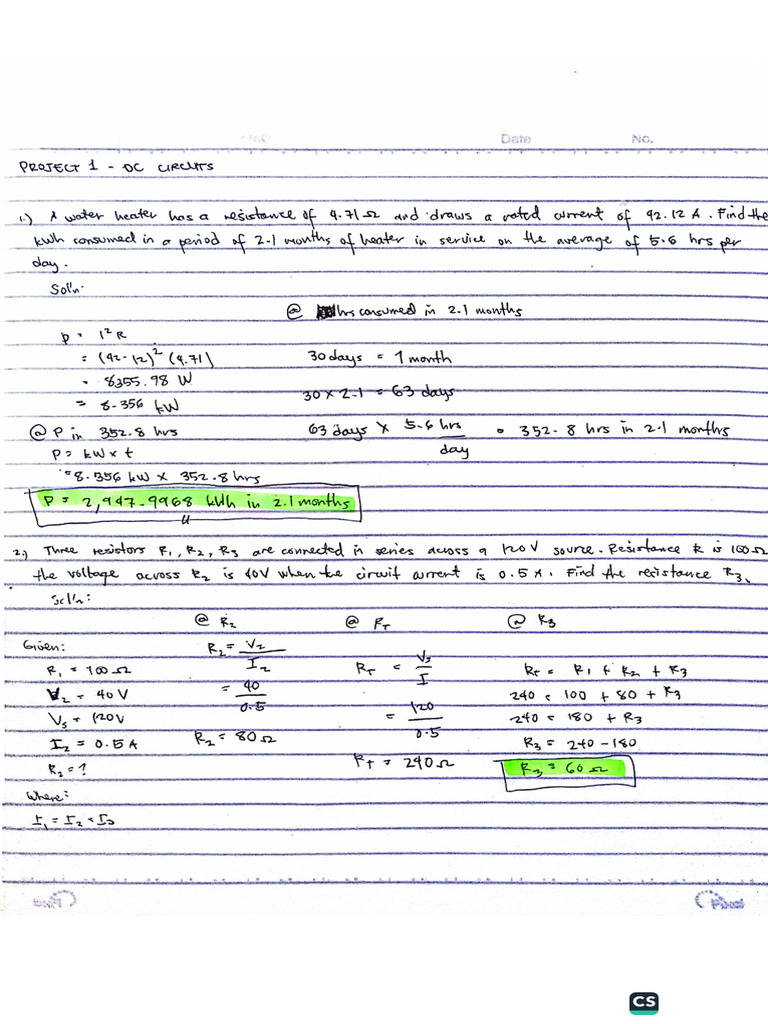 Date No.
PROJECT 1 - DC CIRCUITS
1.) A water heater has a resistance of 4.71 Ω and draws a rated current of 42.12 A. Find the
kWh consumed in a period of 2.1 months of heater in service on the average of 5.6 hrs per
day.
Sol'n:
@ hrs consumed in 2.1 months
P = I²R
= (42.12)² (4.71)
= 8355.98 W
= 8.356 kW
30 days = 1 month
30 x 2.1 = 63 days
63 days x 5.6 hrs/day = 352.8 hrs in 2.1 months
@ P in 352.8 hrs
P = kW x t
= 8.356 kW x 352.8 hrs
P = 2,947.9968 kWh in 2.1 months
2.) Three resistors R₁, R₂, R₃ are connected in series across a 120V source. Resistance R is 100Ω
the voltage across R₂ is 40V when the circuit current is 0.5 A. Find the resistance R₃.
Sol'n:
Given:
R₁ = 100 Ω
V₂ = 40 V
Vs = 120V
I₂ = 0.5 A
R₂ = ?
Where:
I₁ = I₂ = I₃
@ R₂
R₂ = V₂/I₂
= 40/0.5
R₂ = 80 Ω
@ RT
RT = Vs/I
= 120/0.5
RT = 240 Ω
@ R₃
RT = R₁ + R₂ + R₃
240 = 100 + 80 + R₃
240 = 180 + R₃
R₃ = 240 - 180
R₃ = 60 Ω
CS